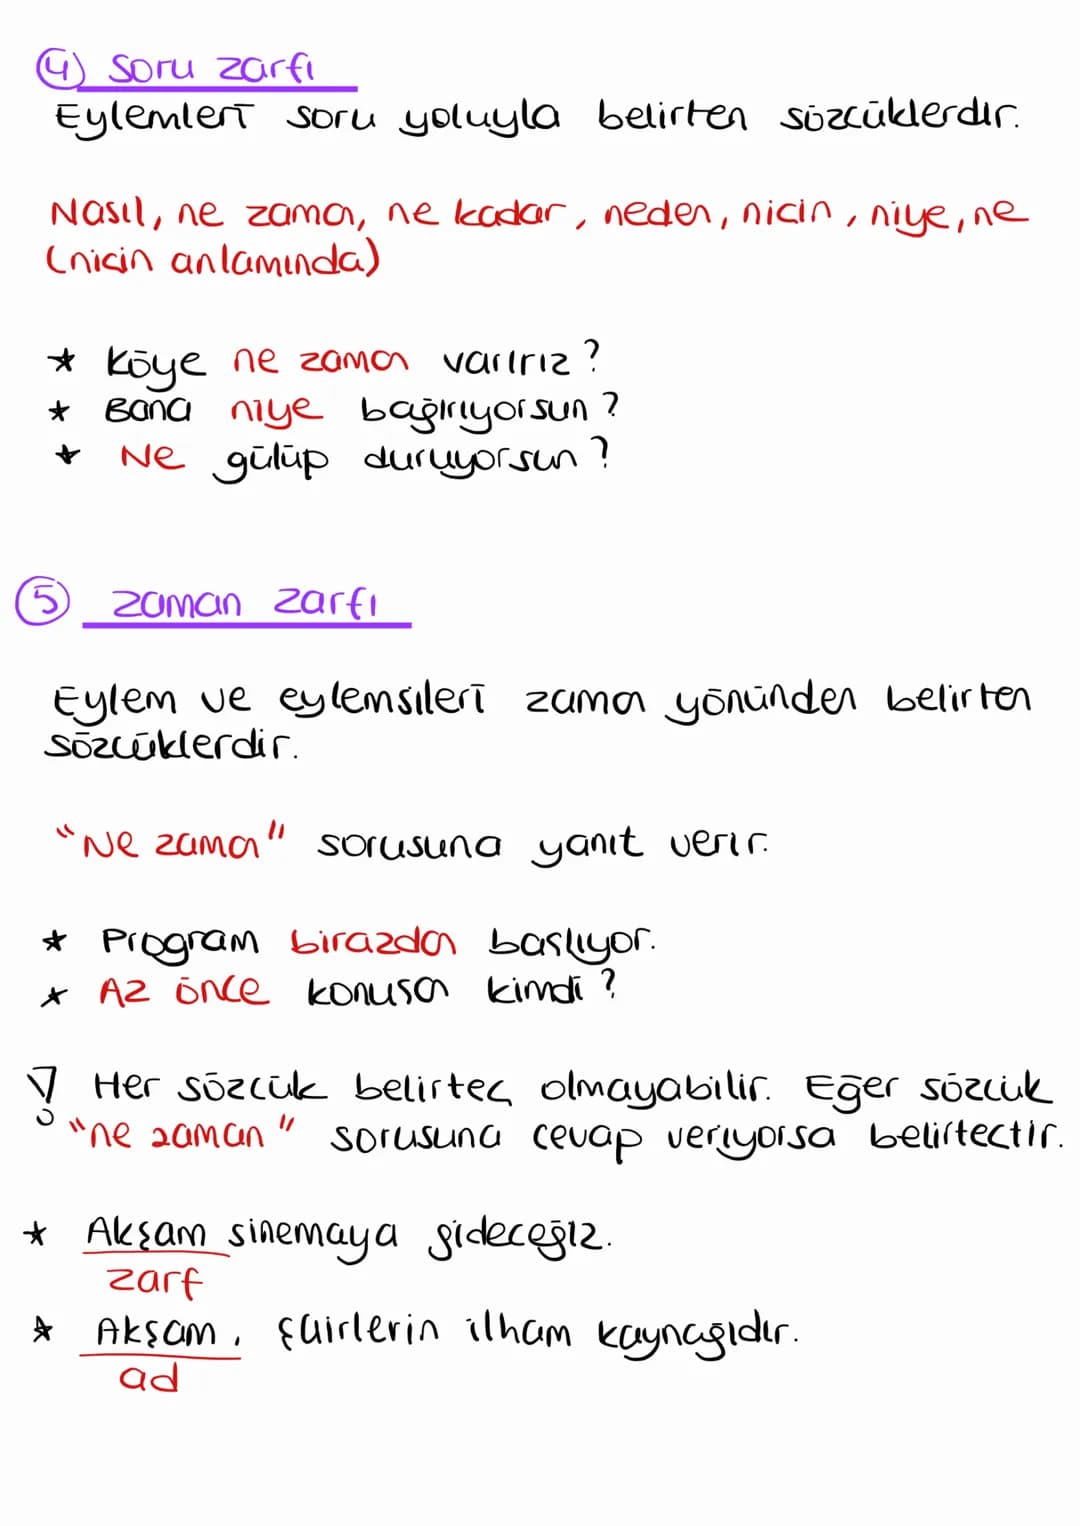 4) Soru zarfı
Eylemleri soru yoluyla belirten sözcüklerdir.
Nasıl, ne zaman, ne kadar, neden, nicin, niye, ne
(nicin anlamında)
* Köye ne zaman varırız?
* Bana niye bağırıyorsun?
* Ne gülüp duruyorsun?
5 zaman zarfı
Eylem ve eylemsileri zaman yönünden belirten
sözcüklerdir.
"Ne zaman" sorusuna yanıt verir.
* Program birazdan baslıyor.
* Az önce konusan kimdi?
! Her sözcük belirteç olmayabilir. Eğer sözcük
"ne zaman" sorusuna cevap veriyorsa belirtectir.
* Akşam sinemaya gideceğiz.
zarf
* Akşam, şairlerin ilham kaynağıdır.
ad